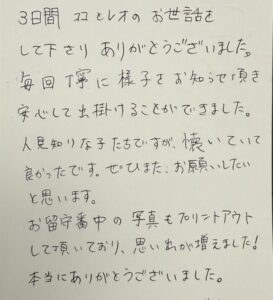 3日間 ココとレオのお世話を
して下さり ありがとうございました。
毎回丁寧に様子をお知らせ頂き
安心して出掛けることができました。
人見知りな子たちですが、懐いていて
良かったです。ぜひまた、お願いしたい
と思います。
お留守番中の写真もプリントアウト
して頂いており、思い出が増えました!
本当にありがとうございました。